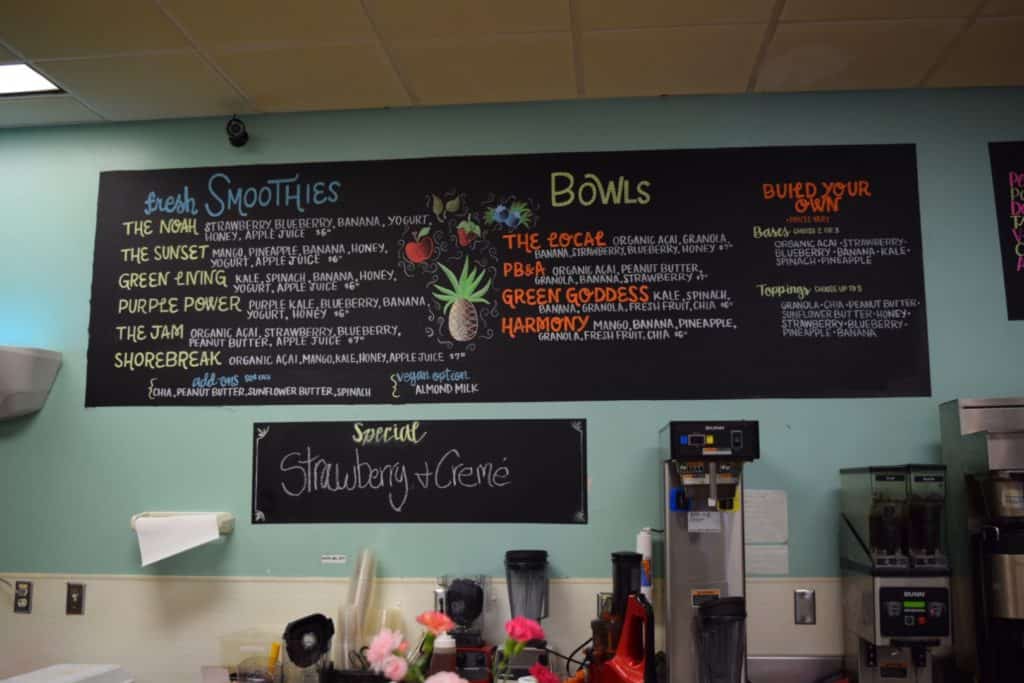 fresh SMOOTHIES
THE NOAH STRAWBERRY, BLUEBERRY, BANANA, YOGURT,
HONEY, APPLE JUICE $6
THE SUNSET MANGO, PINEAPPLE, BANANA, HONEY,
YOGURT, APPLE JUICE $6
GREEN LIVING KALE, SPINACH, BANANA, HONEY,
YOGURT, APPLE JUICE $6
PURPLE POWER PURPLE KALE, BLUEBERRY, BANANA,
YOGURT, HONEY $6
THE JAM ORGANIC ACAI, STRAWBERRY, BLUEBERRY,
PEANUT BUTTER, APPLE JUICE $7
SHOREBREAK ORGANIC ACAI, MANGO, KALE, HONEY, APPLE JUICE $7
add-ons
CHIA, PEANUT BUTTER, SUNFLOWER BUTTER, SPINACH
vegan option
ALMOND MILK
BOWLS
THE LOCAL ORGANIC ACAI, GRANOLA,
BANANA, STRAWBERRY, BLUEBERRY, HONEY
PB&A ORGANIC ACAI, PEANUT BUTTER,
GRANOLA, BANANA, STRAWBERRY
GREEN GODDESS KALE, SPINACH,
BANANA, GRANOLA, FRESH FRUIT, CHIA $6
HARMONY MANGO, BANANA, PINEAPPLE,
GRANOLA, FRESH FRUIT, CHIA $6
BUILD YOUR
OWN
PRICES VARY
Bases CHOOSE 2 OR 3
ORGANIC ACAI • STRAWBERRY •
BLUEBERRY • BANANA • KALE •
SPINACH • PINEAPPLE
Toppings CHOOSE UP TO 5
GRANOLA • CHIA • PEANUT BUTTER •
SUNFLOWER BUTTER • HONEY •
STRAWBERRY • BLUEBERRY •
PINEAPPLE • BANANA
Special
Strawberry + Cremé
BUNN
BUNN